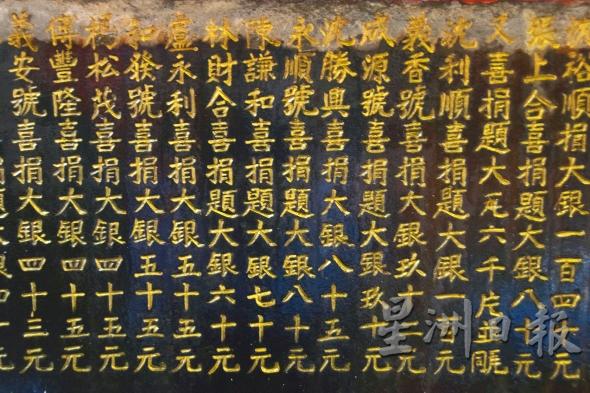 裕順捐大銀一百四元
張上合喜捐題大銀八十元
又喜捐題大瓦六千片並
沈利順喜捐題大銀一百元
義香號喜捐題大銀玖十元
成源號喜捐題大銀玖十元
沈勝興喜捐大銀八十五元
永順號喜捐題大銀八十元
陳謙和喜捐題大銀七十元
林財合喜捐題大銀六十元
盧永利喜捐大銀五十五元
和發號喜捐大銀五十五元
楊松茂喜捐大銀四十五元
傅豐隆喜捐大銀四十五元
義安號喜捐大銀四十三元
星洲日報